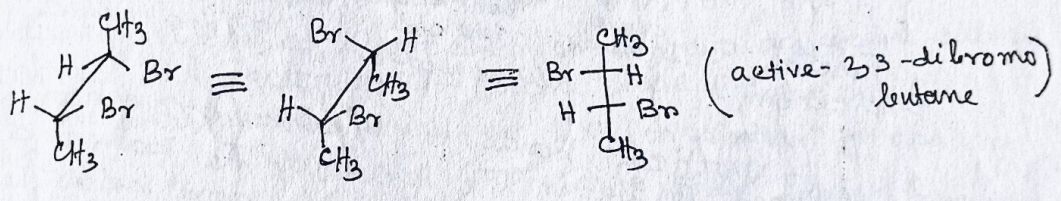 CH3
H Br
H Br
CH3
≡
Br H
CH3
H Br
CH3
≡
CH3
Br H
H Br
CH3
(active-2,3-dibromo
butane)